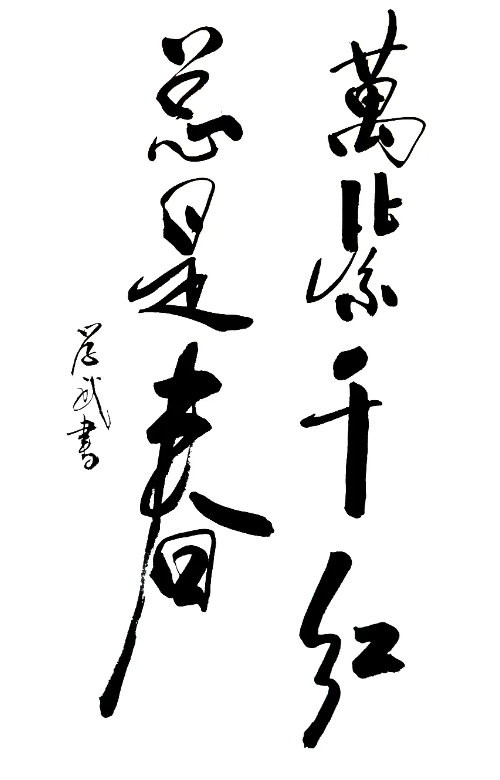 萬紫千红
总是春
学武書